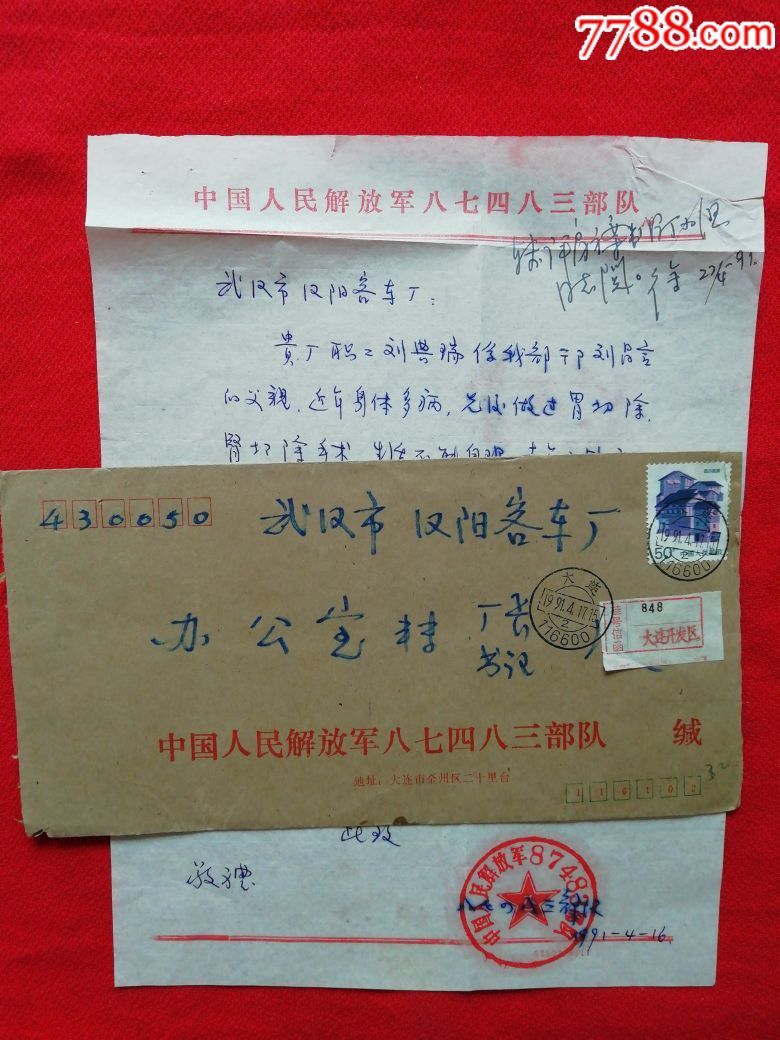 7788.com
中国人民解放军八七四八三部队
武汉市汉阳客车厂：
貴厂职工刘典瑞系我部干部刘昌言
的父親，近年身体多病，先后做过胃切除，
腎切除手术，生活不能自理
430050
武汉市汉阳客车厂
办公室转厂长
书记
50
中国人民邮政
大连
1991.4.17.15
2
116600
848
挂号信函
大连开发区
中国人民解放军八七四八三部队 缄
地址：大连市金州区二十里台
116102
32
此致
敬禮
中国人民解放军87483部队
1991-4-16